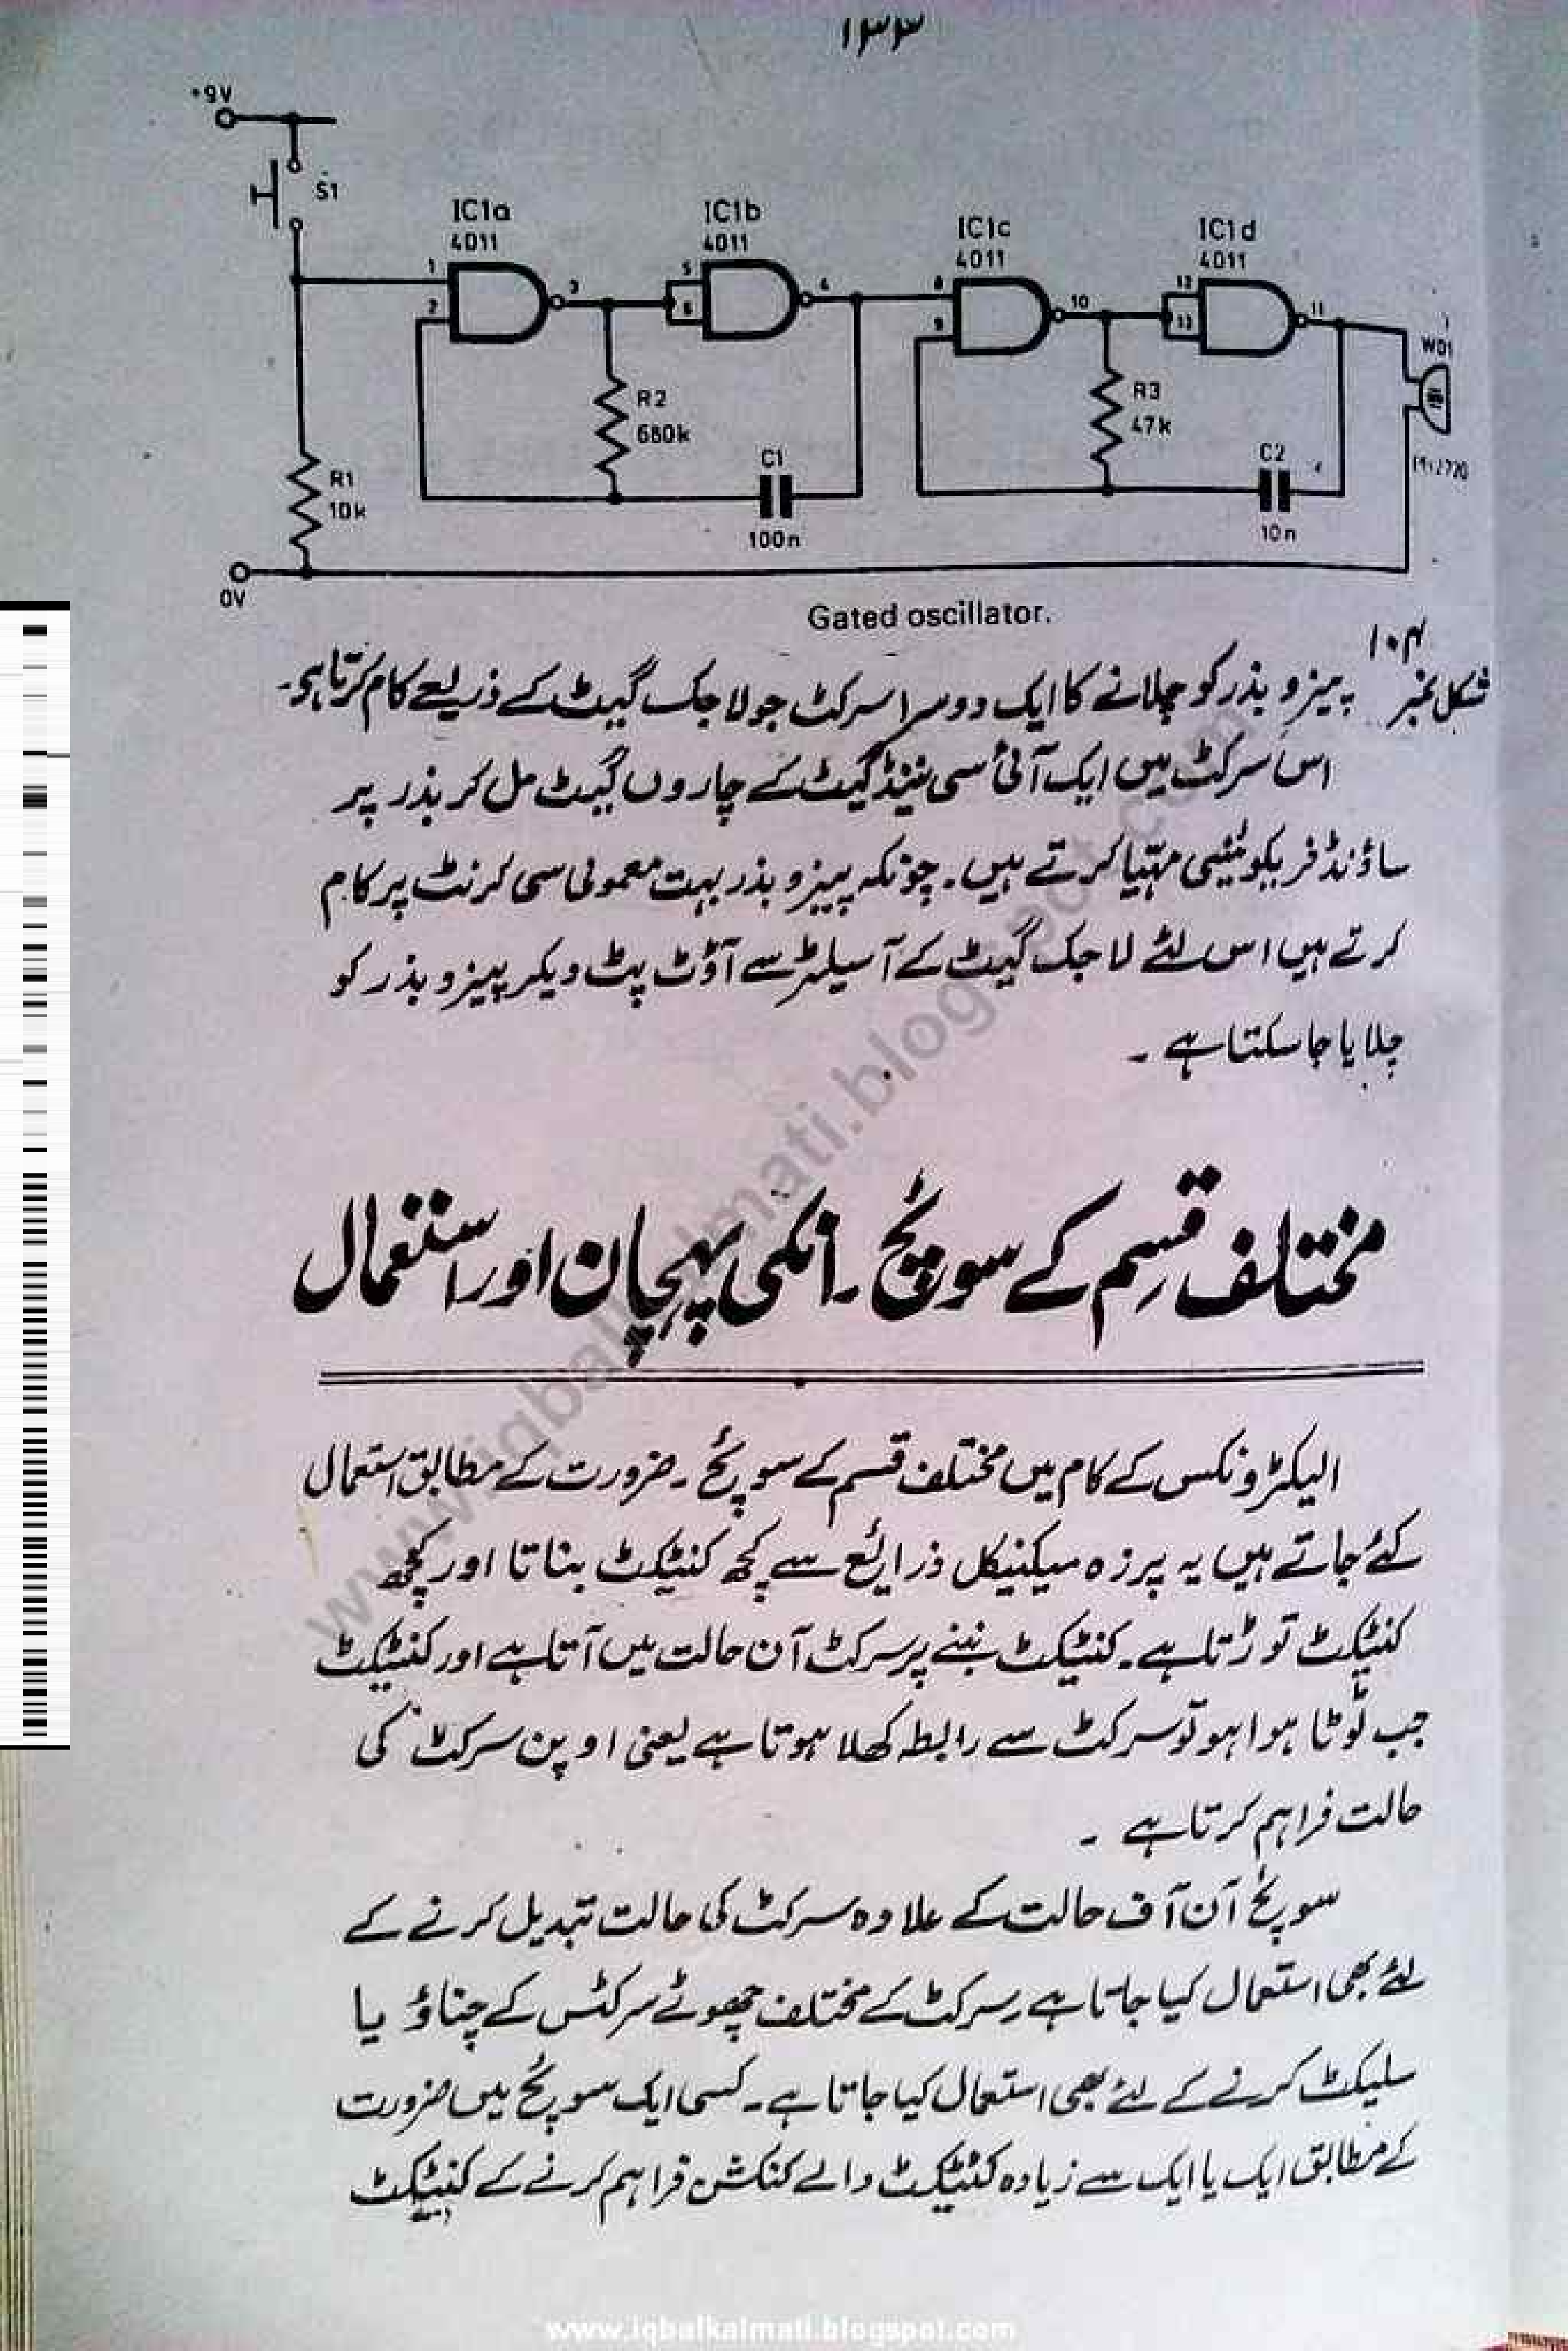 ۱۳۳
+9V
S1
IC1a
4011
IC1b
4011
IC1c
4011
IC1d
4011
1
2
3
5
6
4
8
9
10
12
13
11
WD1
R2
680k
R3
47k
C1
100n
C2
10n
R1
10k
0V
Gated oscillator.
شکل نمبر ۱۰۴ پیزو بذر کو چلانے کا ایک دوسرا سرکٹ جو لاجک گیٹ کے ذریعے کام کرتا ہے۔
اس سرکٹ میں ایک آئی سی نینڈ گیٹ کے چاروں گیٹ مل کر بذر پر
ساؤنڈ فریکوئینسی مہیّا کرتے ہیں۔ چونکہ پیزو بذر بہت معمولی سی کرنٹ پر کام
کرتے ہیں اس لئے لاجک گیٹ کے آسیلیٹر سے آؤٹ پٹ دیکر پیزو بذر کو
چلایا جا سکتا ہے ۔
مختلف قسم کے سوئچ ۔ انکی پہچان اور استعمال
الیکٹرونکس کے کام میں مختلف قسم کے سوئچ ۔ ضرورت کے مطابق استعمال
کئے جاتے ہیں یہ پرزہ میکنیکل ذرائع سے کچھ کنٹیکٹ بناتا اور کچھ
کنٹیکٹ توڑتا ہے۔ کنٹیکٹ بننے پر سرکٹ آن حالت میں آتا ہے اور کنٹیکٹ
جب ٹوٹا ہوا ہو تو سرکٹ سے رابطہ کھلا ہوتا ہے یعنی اوپن سرکٹ کی
حالت فراہم کرتا ہے ۔
سوئچ آن آف حالت کے علاوہ سرکٹ کی حالت تبدیل کرنے کے
لئے بھی استعمال کیا جاتا ہے رسرکٹ کے مختلف چھوٹے سرکٹس کے چناؤ یا
سلیکٹ کرنے کے لئے بھی استعمال کیا جاتا ہے۔ کسی ایک سوئچ میں ضرورت
کے مطابق ایک یا ایک سے زیادہ کنٹیکٹ والے کنکشن فراہم کرنے کے کنٹیکٹ
www.iqbalkalmati.blogspot.com
www.iqbalkalmati.blogspot.com